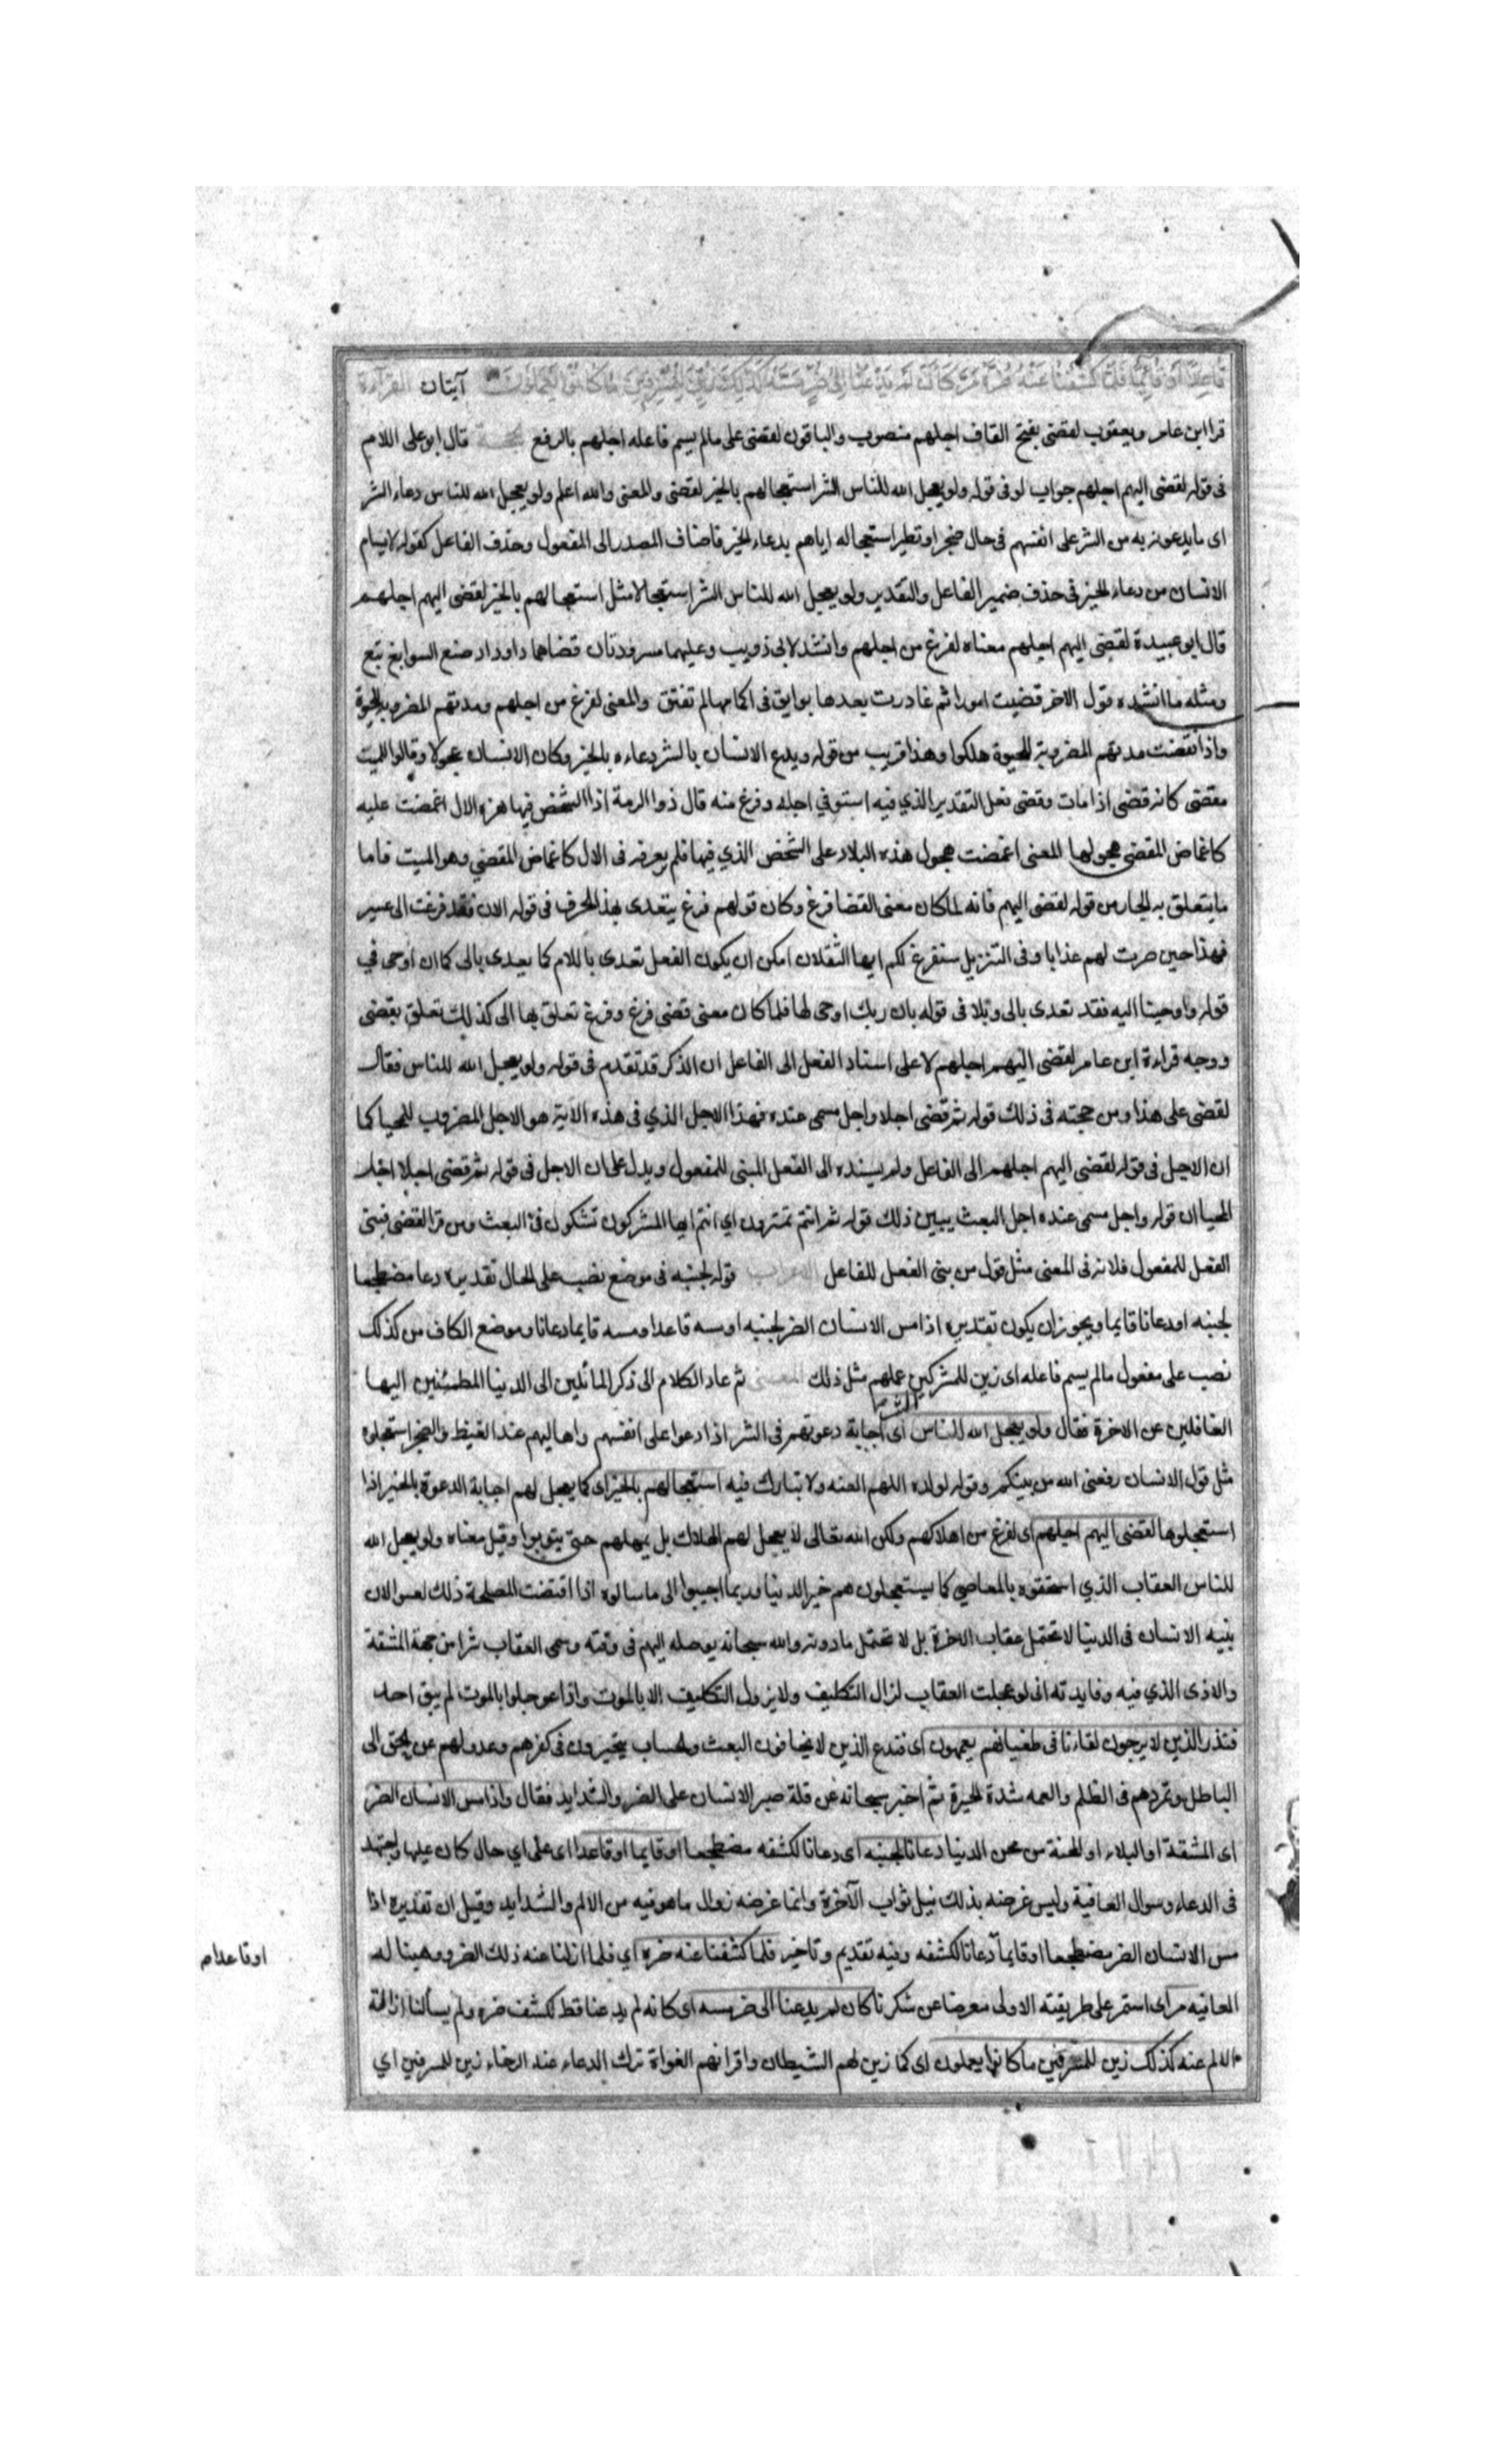 قَاعِدًا أَوْ قَائِمًا فَلَمَّا كَشَفْنَا عَنْهُ ضُرَّهُ مَرَّ كَأَنْ لَمْ يَدْعُنَا إِلَى ضُرٍّ مَسَّهُ كَذَلِكَ زُيِّنَ لِلْمُسْرِفِينَ مَا كَانُوا يَعْمَلُونَ آيتان القراءة
قرا ابن عامر ويعقوب لقضى بفتح القاف اجلهم منصوب والباقون لقضى على مالم يسم فاعله اجلهم بالرفع الحجة قال ابو على اللام
فى قوله لقضى اليهم اجلهم جواب لو فى قوله ولو يعجل الله للناس الشر استعجالهم بالخير لقضى والمعنى والله اعلم ولو يعجل الله للناس دعاء الشر
اى ما يدعون به من الشر على انفسهم فى حال ضجر او تطير استعجاله اياهم بدعاء الخير فاضاف المصدر الى المفعول وحذف الفاعل كقوله لا يسام
الانسان من دعاء الخير فى حذف ضمير الفاعل والتقدير ولو يعجل الله للناس الشر استعجالا مثل استعجالهم بالخير لقضى اليهم اجلهم
قال ابو عبيدة لقضى اليهم اجلهم معناه لفرغ من اجلهم وانشد لابى ذويب وعليهما مسرودتان قضاهما داود اد صنع السوابغ تبع
ومثله ما انشده قول الاخر قضيت امورا ثم غادرت بعدها بوايق فى اكمامها لم تفتق والمعنى لفرغ من اجلهم ومدتهم المضروبة للحيوة
واذا انقضت مدتهم المضروبة للحيوة هلكوا وهذا قريب من قوله ويدع الانسان بالشر دعاءه بالخير وكان الانسان عجولا وقالوا للميت
مقضى كانه قضى اذا مات وقضى فعل التقدير الذي فيه استوفي اجله وفرغ منه قال ذو الرمة اذا الشخص فيها هزه الال اغمضت عليه
كاغماض المقضى هجولها المعنى اغمضت هجول هذه البلاد على الشخص الذي فيها فلم يعرفه فى الال كاغماض المقضي وهو الميت فاما
ما يتعلق به الجار من قوله لقضى اليهم فانه لما كان معنى القضا فرغ وكان قولهم فرغ يتعدى بهذا الحرف فى قوله الان فقد فرغت الى عسير
فهذا حين صرت لهم عذابا وفى التنزيل سنفرغ لكم ايها الثقلان امكن ان يكون الفعل تعدى باللام كما يعدى بالى كما ان اوحى في
قوله واوحينا اليه فقد تعدى بالى وتلا فى قوله بان ربك اوحى لها فلما كان معنى قضى فرغ وفرغ تعلق بها الى كذلك تعلق بقضى
ووجه قراءة ابن عامر لقضى اليهم اجلهم لا على اسناد الفعل الى الفاعل ان الذكر قد تقدم فى قوله ولو يعجل الله للناس فقال
لقضى على هذا ومن حجته فى ذلك قوله ثم قضى اجلا واجل مسمى عنده فهذا الاجل الذي فى هذه الاية هو الاجل المضروب للمحيا كما
ان الاجل فى قوله لقضى اليهم اجلهم الى الفاعل ولم يسنده الى الفعل المبنى للمفعول ويدل على ان الاجل فى قوله ثم قضى اجلا اجل
المحيا ان قوله واجل مسمى عنده اجل البعث يبين ذلك قوله ثم انتم تمترون اي انتم ايها المشركون تشكون فى البعث ومن قرا لقضى فبنى
الفعل للمفعول فلانه فى المعنى مثل قول من بنى الفعل للفاعل الاعراب قوله لجنبه فى موضع نصب على الحال تقديره دعا مضطجعا
لجنبه او دعانا قايما ويجوز ان يكون تقديره اذا مس الانسان الضر لجنبه او مسه قاعدا ومسه قايما دعانا وموضع الكاف من كذلك
نصب على مفعول مالم يسم فاعله اى زين للمشركين عملهم مثل ذلك المعنى ثم عاد الكلام الى ذكر المائلين الى الدنيا المطمئنين اليها
الغافلين عن الاخرة فقال ولو يعجل الله للناس الشر اى اجابة دعوتهم فى الشر اذا دعوا على انفسهم واهاليهم عند الغيظ والضجر استعجلوه
مثل قول الانسان رفعنى الله من بينكم وقوله لولده اللهم العنه ولا تبارك فيه استعجالهم بالخير اى كما يعجل لهم اجابة الدعوة بالخير اذا
استعجلوها لقضى اليهم اجلهم اى لفرغ من اهلاكهم ولكن الله تعالى لا يعجل لهم الهلاك بل يمهلهم حتى يتوبوا وقيل معناه ولو يعجل الله
للناس العقاب الذي استحقوه بالمعاصي كما يستعجلون هم خير الدنيا وربما اجيبوا الى ما سالوه اذا اقتضت المصلحة ذلك لعسوالان
بنيه الانسان فى الدنيا لا تحتمل عقاب الاخرة بل لا تحتمل ما دونه والله سبحانه يوصله اليهم فى وقته وسمى العقاب شرا من جهة المشقة
والاذى الذي فيه وفايدته انى لو عجلت العقاب لزال التكليف ولا يزول التكليف الا بالموت واذا عوجلوا بالموت لم يبق احد
فنذر الذين لا يرجون لقاءنا فى طغيانهم يعمهون اى فندع الذين لا يخافون البعث والحساب يتحيرون فى كفرهم وعدولهم عن الحق الى
الباطل وتمردهم فى الظلم والعمه شدة الحيرة ثم اخبر سبحانه عن قلة صبر الانسان على الضر والشدايد فقال واذا مس الانسان الضر
اى المشقة او البلاء او المحنة من محن الدنيا دعانا لجنبه اى دعانا لكشفه مضطجعا او قايما او قاعدا اى على اي حال كان عليها واجتهد
فى الدعاء وسوال العافية وليس غرضه بذلك نيل ثواب الآخرة وانما غرضه زوال ما هو فيه من الالم والشدايد وقيل ان تقديره اذا
مس الانسان الضر مضطجعا او قايما دعانا لكشفه وفيه تقديم وتاخير فلما كشفنا عنه ضره اي فلما ازلنا عنه ذلك الضر ووهبنا له
او قاعدا م
العافية مر اى استمر على طريقته الاولى معرضا عن شكرنا كان لم يدعنا الى ضر مسه اى كانه لم يدعنا قط لكشف ضره ولم يسألنا ازالة
الالم عنه كذلك زين للمسرفين ما كانوا يعملون اى كما زين لهم الشيطان واقرانهم الغواة ترك الدعاء عند الرخاء زين للمسرفين اي